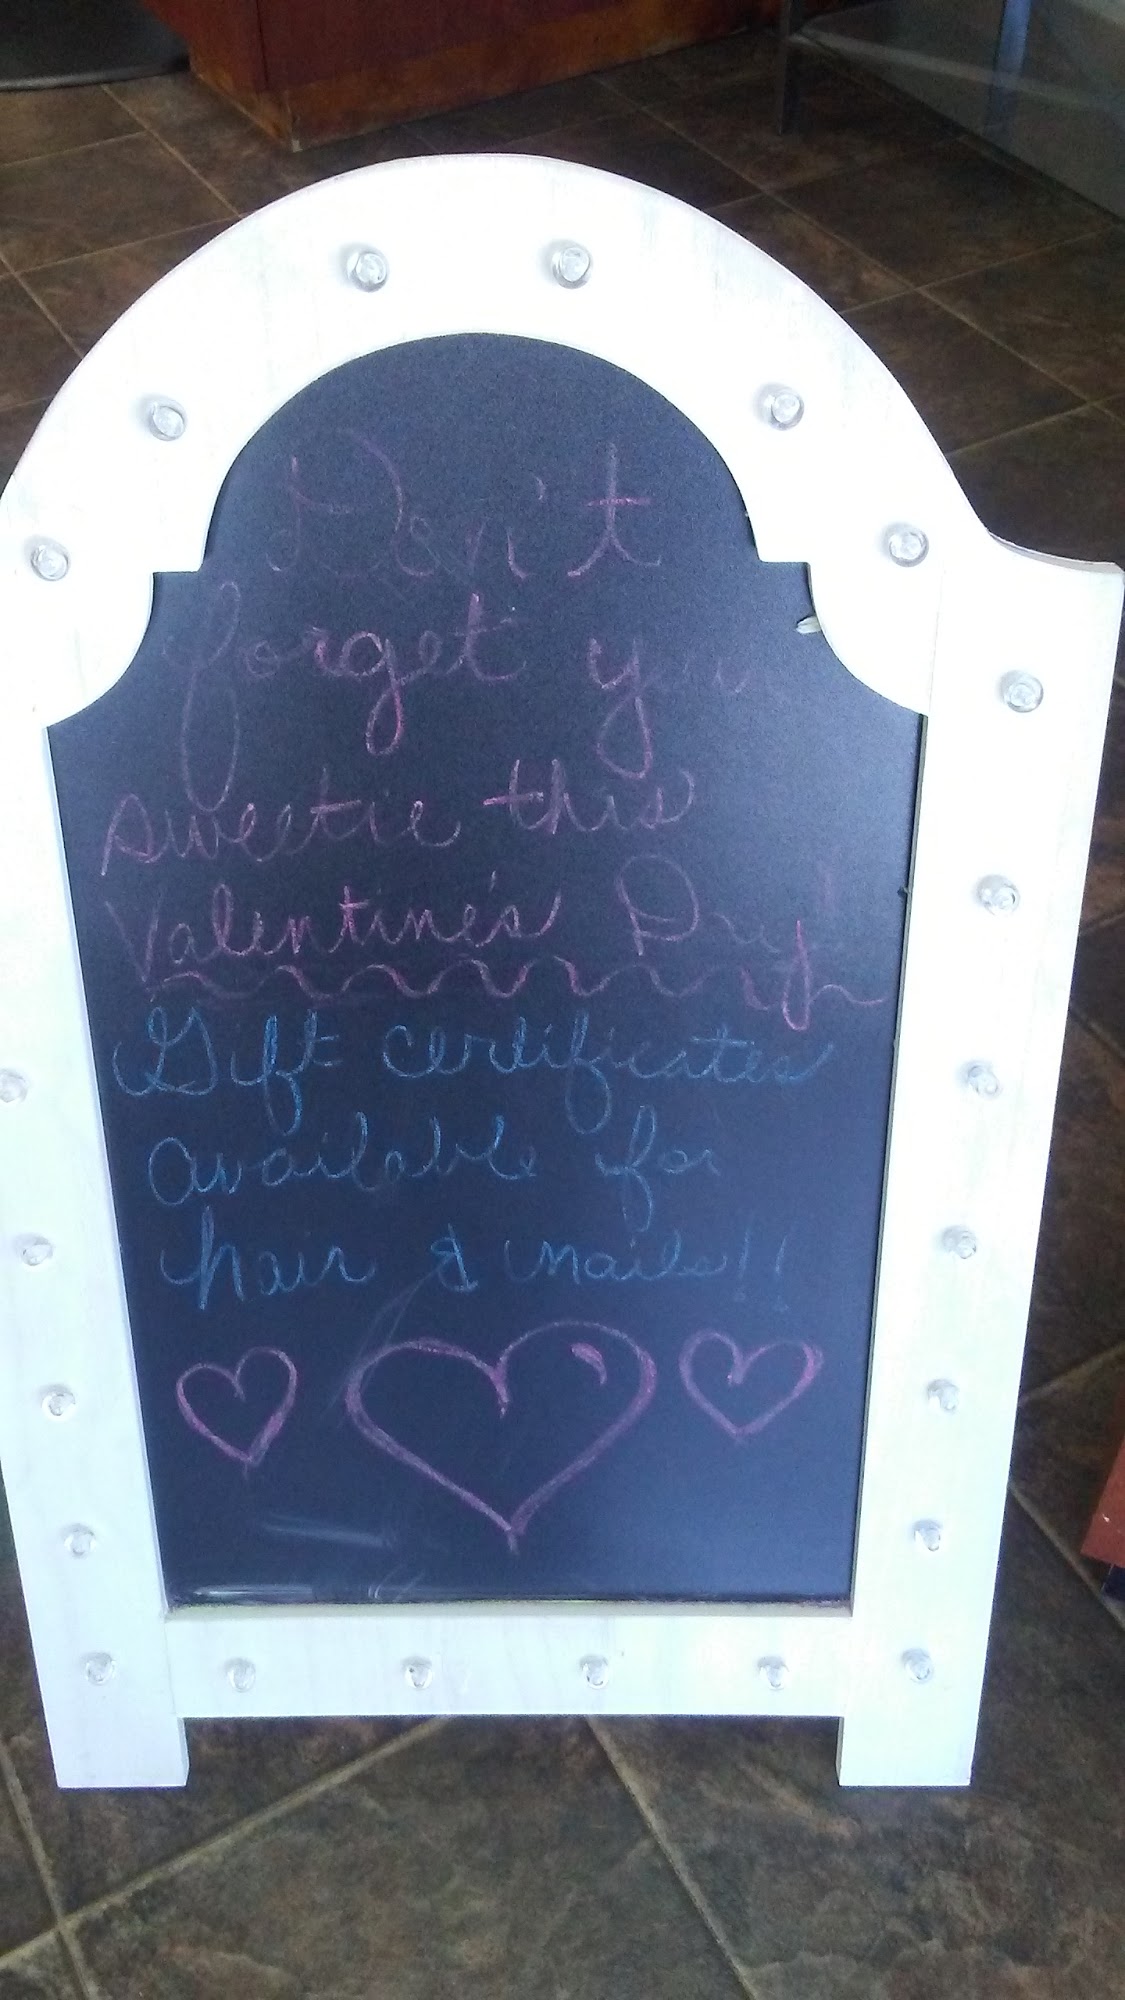 Don't
forget your
sweetie this
Valentine's Day!
Gift certificates
available for
hair & nails!!